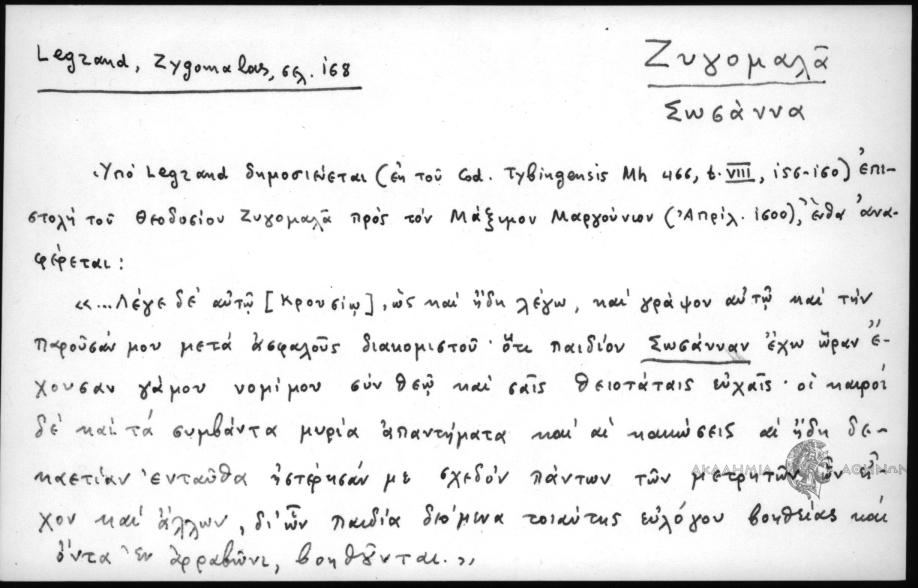 Legrand, Zygomalas, σελ. 168
Ζυγομαλᾶ
Σωσάννα
Ὑπό Legrand δημοσιεύεται (ἐκ τοῦ Cod. Tybingensis Mh 466, t. VIII, 156-160) ἐπι-
στολή τοῦ Θεοδοσίου Ζυγομαλᾶ πρὸς τόν Μάξιμον Μαργούνιον (Ἀπρίλ. 1600), ἔνθα ἀνα-
φέρεται:
«...Λέγε δέ αὐτῷ [Κρουσίῳ], ὡς καί ἤδη λέγω, καί γράψον αὐτῷ καί τήν
παροῦσάν μου μετά ἀσφαλοῦς διακομιστοῦ· ὅτι παιδίον Σωσάνναν ἔχω ὥραν ἔ-
χουσαν γάμου νομίμου σύν θεῷ καί σαῖς θειοτάταις εὐχαῖς· οἱ καιροί
δέ καί τά συμβάντα μυρία ἀπαντήματα καί αἱ κακώσεις αἱ ἤδη δε-
καετίαν ἐνταῦθα ὑστέρησάν με σχεδόν πάντων τῶν μετρητῶν ὧν εἶ-
χον καί ἄλλων, δι' ὧν παιδία δεόμενα τοιαύτης εὐλόγου βοηθείας καί
ὄντα ἐν ἀρραβῶνι, βοηθοῦνται.»
ΑΚΑΔΗΜΙΑ ΑΘΗΝΩΝ